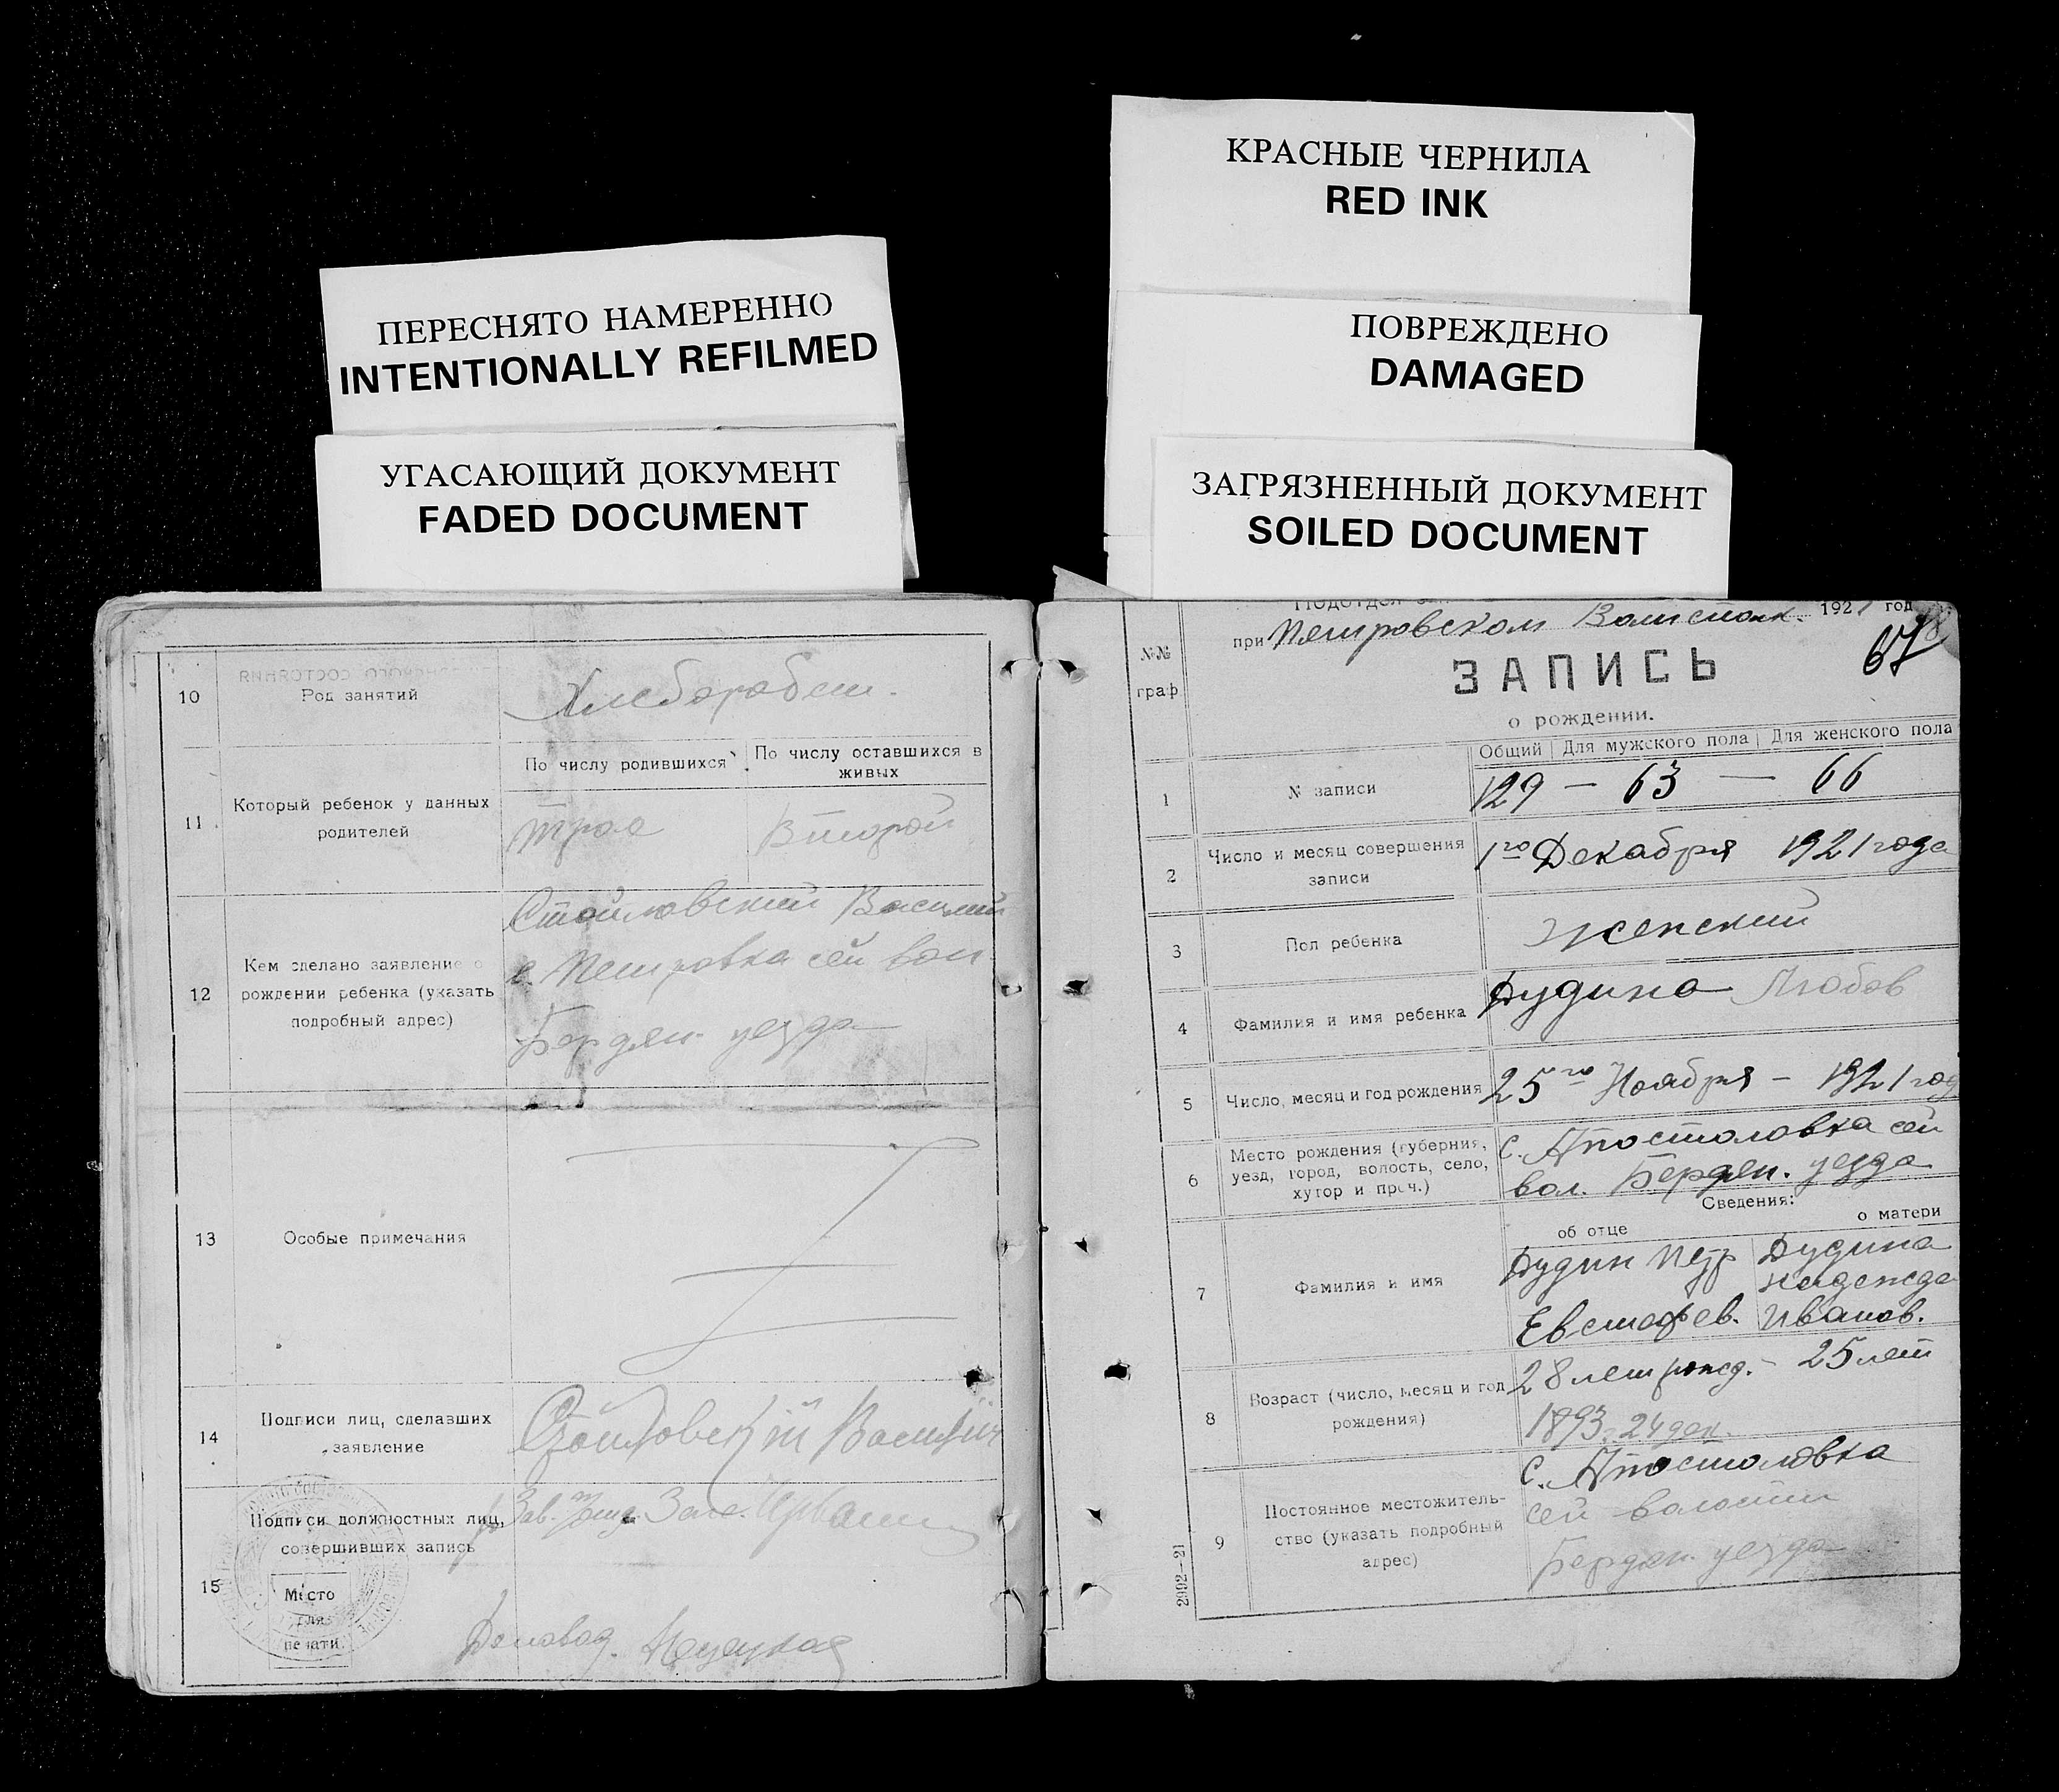 КРАСНЫЕ ЧЕРНИЛА
RED INK
ПОВРЕЖДЕНО
DAMAGED
ЗАГРЯЗНЕННЫЙ ДОКУМЕНТ
SOILED DOCUMENT
ПЕРЕСНЯТО НАМЕРЕННО
INTENTIONALLY REFILMED
УГАСАЮЩИЙ ДОКУМЕНТ
FADED DOCUMENT
10
Род занятий
Хлебороб
11
Который ребенок у данных
родителей
По числу родившихся
По числу оставшихся в
живых
трое
Второй
12
Кем сделано заявление о
рождении ребенка (указать
подробный адрес)
Стойловский Василий
с. Петровка сей вол.
Бердян. уезда
13
Особые примечания
14
Подписи лиц, сделавших
заявление
Стойловскій Василій
15
Подписи должностных лиц,
совершивших запись
Место
для
печати
Зав.
Деловод.
№№
граф
Подотдел
при Петровском Волисполк. 1921 год
67
ЗАПИСЬ
о рождении.
Общий | Для мужского пола | Для женского пола
1
№ записи
129 — 63 — 66
2
Число и месяц совершения
записи
1го Декабря 1921 года
3
Пол ребенка
женский
4
Фамилия и имя ребенка
Дудина Любов
5
Число, месяц и год рождения
25го Ноября - 1921 год
6
Место рождения (губерния,
уезд, город, волость, село,
хутор и проч.)
с. Апостоловка сей
вол. Бердян. уезда
Сведения:
об отце
о матери
7
Фамилия и имя
Дудин Петр
Евстафьев.
Дудина
Надежда
Иванов.
8
Возраст (число, месяц и год
рождения)
28 лет рожд. - 25 лет
1893 г. 24 дек.
9
Постоянное местожитель-
ство (указать подробный
адрес)
с. Апостоловка
сей волости
Бердян. уезда
2992-21